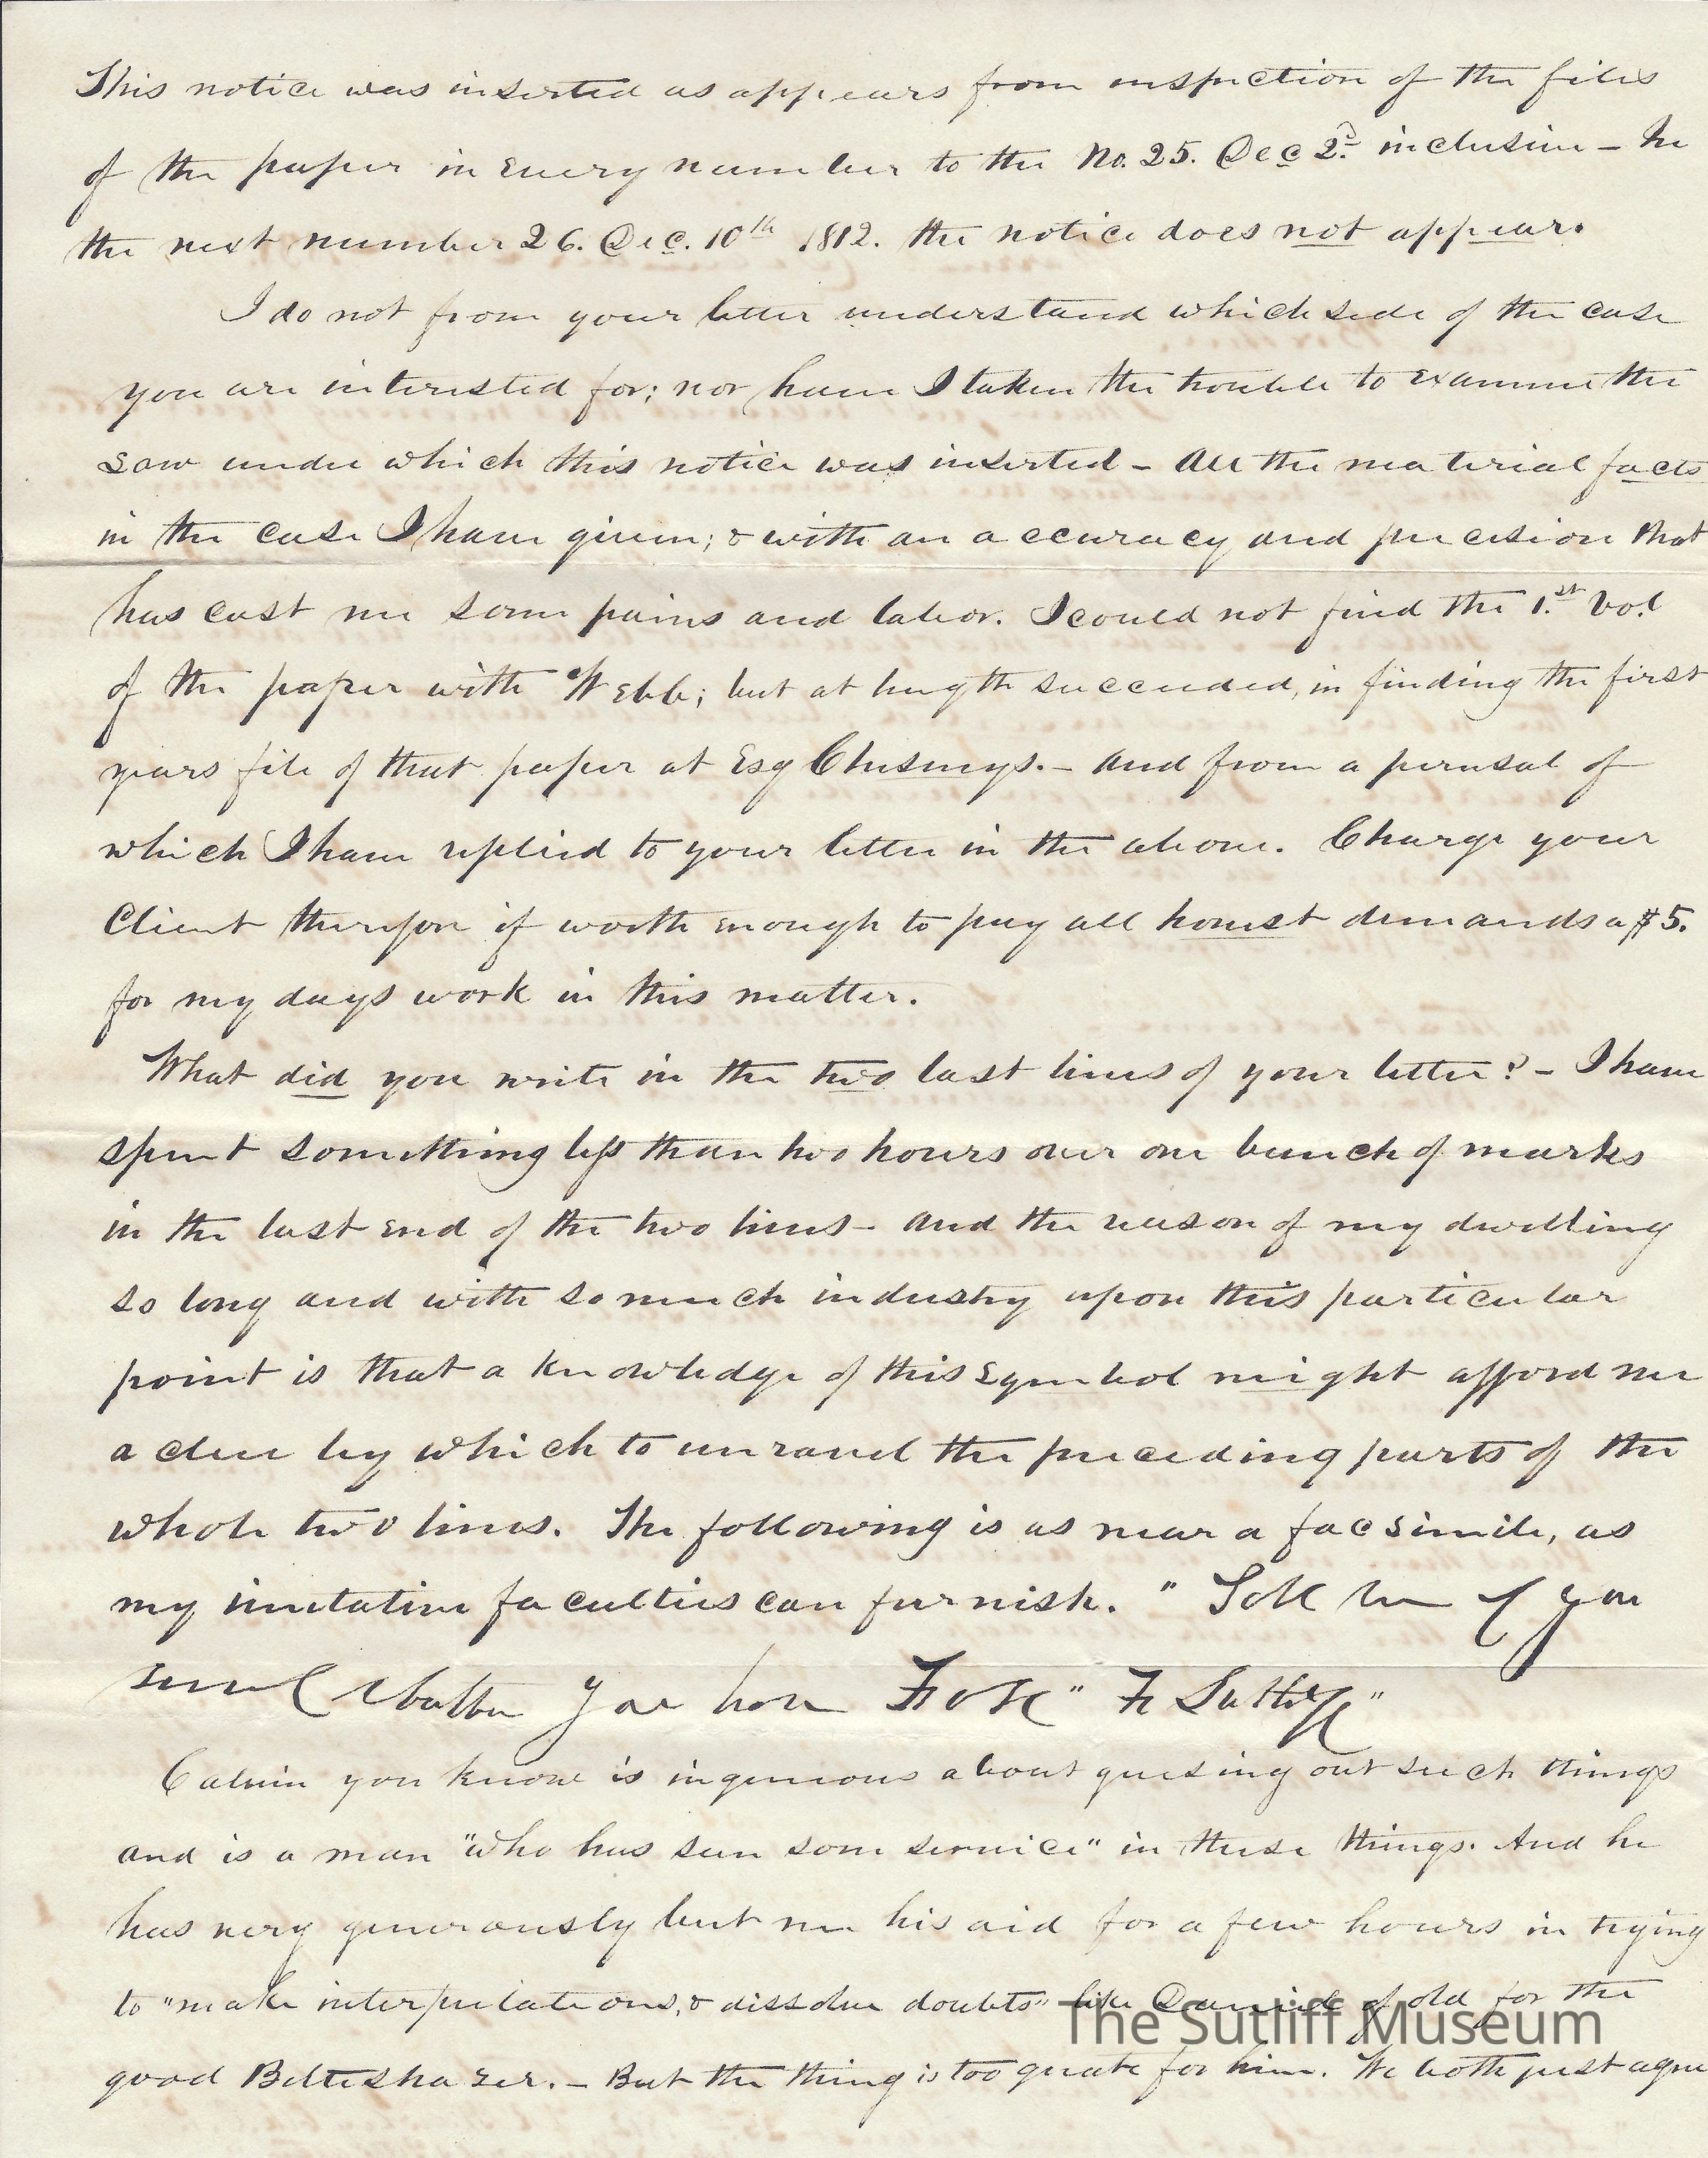 This notice was inserted as appears from inspection of the files
of the paper in every number to the No. 25. Dec 2d. inclusive – In
the next number 26. Dec. 10th 1812. the notice does not appear.
I do not from your letter understand which side of the case
you are interested for; nor have I taken the trouble to examine the
Law under which this notice was inserted – All the material facts
in the case I have given; & with an accuracy and precision that
has cost me some pains and labor. I could not find the 1.st Vol
of the paper with Webb; but at length succeeded, in finding the first
years file of that paper at Esq Chesneys. – And from a perusal of
which I have replied to your letter in the above. Charge your
Client therefore if worth enough to pay all honest demands a $5.
for my days work in this matter.
What did you write in the two last lines of your letter? – I have
spent something less than two hours over one bunch of marks
in the last end of the two lines – And the reason of my dwelling
so long and with so much industry upon this particular
point is that a knowledge of this symbol might afford me
a clue by which to unravel the preceding parts of the
whole two lines. The following is as near a facsimile, as
my imitative faculties can furnish. "
Calvin you know is ingenious about guesing out such things
and is a man "who has seen some service" in these things. And he
has very generously lent me his aid for a few hours in trying
to "make interpretations, & dissolve doubts" like Daniel of old for the
good Belteshazer. – But the thing is too great for him. We both just agree
The Sutliff Museum